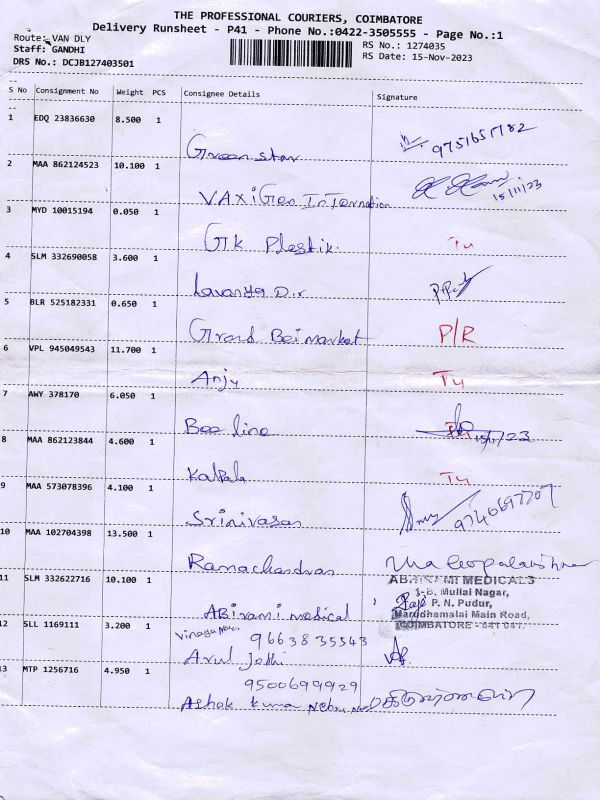 THE PROFESSIONAL COURIERS, COIMBATORE
Delivery Runsheet - P41 - Phone No.:0422-3505555 - Page No.:1
Route: VAN DLY
RS No.: 1274035
Staff: GANDHI
RS Date: 15-Nov-2023
DRS No.: DCJB127403501
S No Consignment No Weight PCS Consignee Details Signature
1 EDQ 23836630 8.500 1
Green star 9751651782
2 MAA 862124523 10.100 1
VAXiGeo InTernation 15/11/23
3 MYD 10015194 0.050 1
GTK Plastik. Tu
4 SLM 332690058 3.600 1
Lavanya D.r
5 BLR 525182331 0.650 1
Grand Bei market P/R
6 VPL 945049543 11.700 1
Anju Tu
7 AWY 378170 6.050 1
Bee line 15/11/23
8 MAA 862123844 4.600 1
Kalpah Tu
9 MAA 573078396 4.100 1
Srinivasan
10 MAA 102704398 13.500 1
Ramachandran
11 SLM 332622716 10.100 1
ABIRAMI MEDICALS
3-B, Mullai Nagar,
P. N. Pudur,
Marudhamalai Main Road,
COIMBATORE - 641 041.
ABirami medical
12 SLL 1169111 3.200 1
9663835543
Arul Jothi
13 MTP 1256716 4.950 1
9500699929
Ashok kuma Nehru